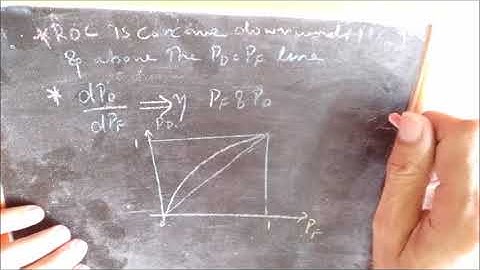 * ROC is concave downwards
& above the PD = PF line
* dPD/dPF ⟹ η PF & PD
PD
1
0 1 PF